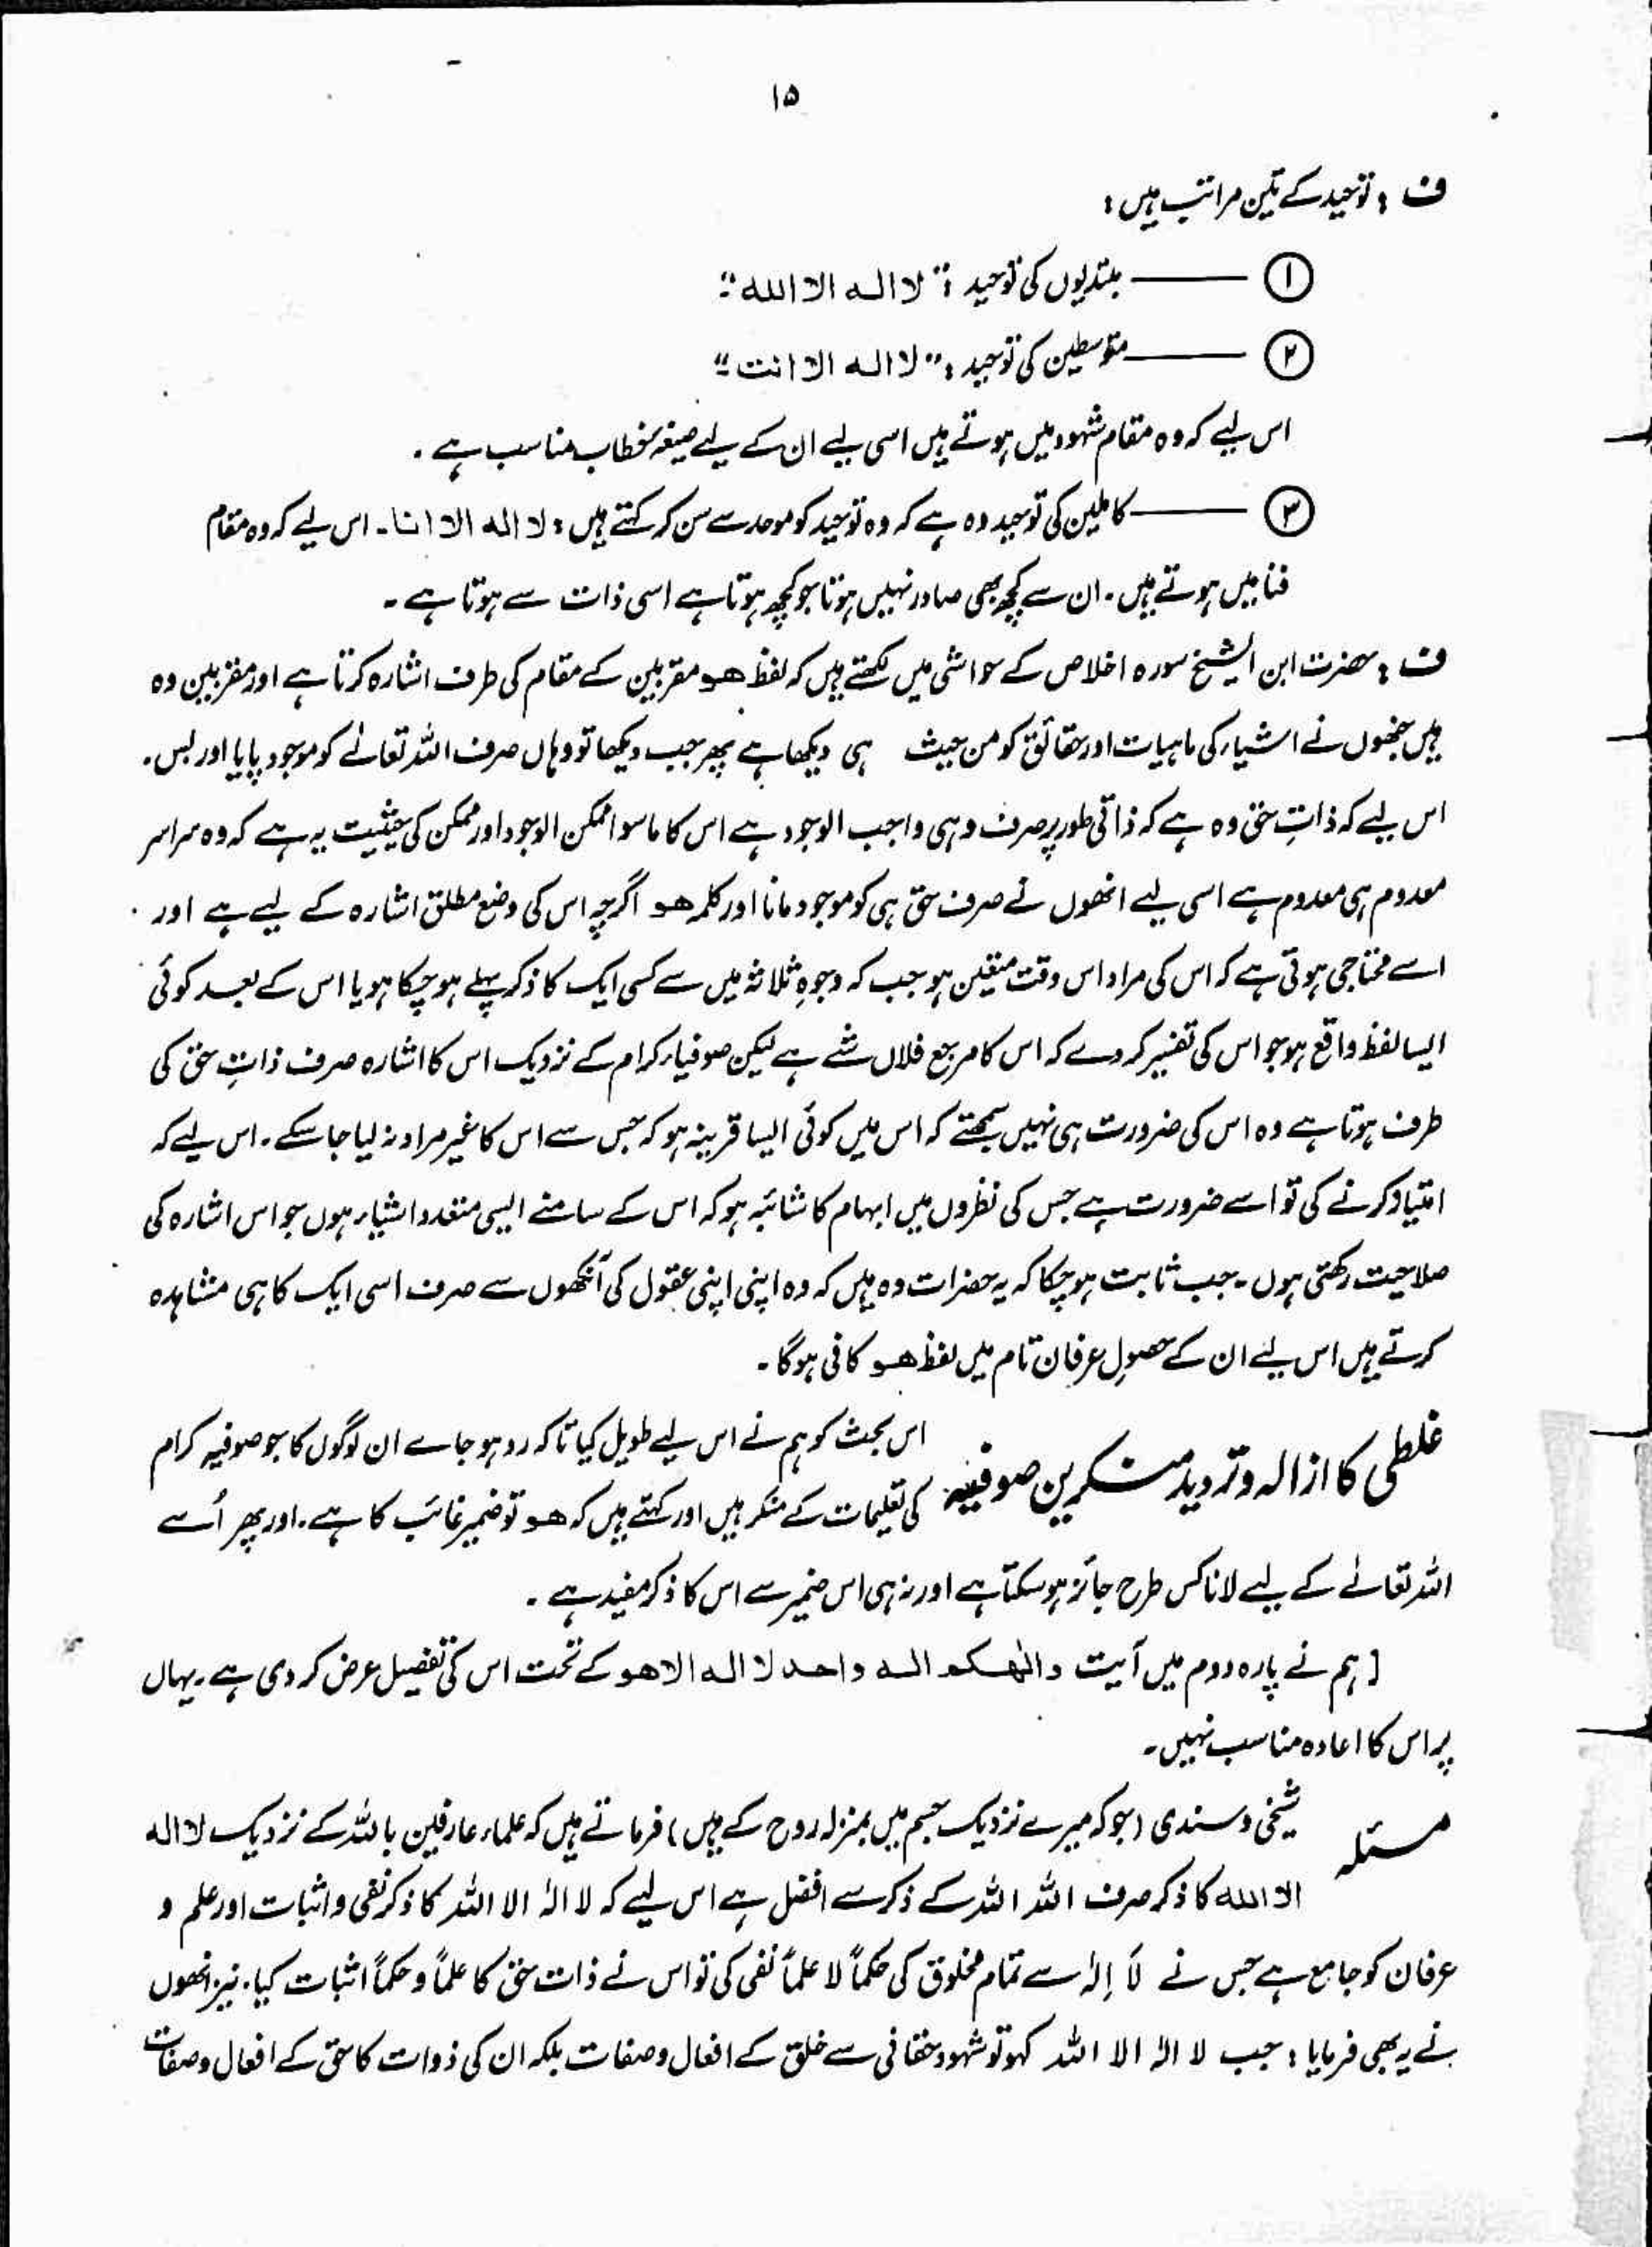 ۱۵
ف : توحید کے تین مراتب ہیں :
① —— مبتدیوں کی توحید : "لا الہ الا اللہ"۔
② —— متوسطین کی توحید : "لا الہ الا انت"۔
اس لیے کہ وہ مقام شہود میں ہوتے ہیں اسی لیے ان کے لیے صیغۂ خطاب مناسب ہے ۔
③ —— کاملین کی توحید وہ ہے کہ وہ توحید کو موحد سے سن کر کہتے ہیں : لا الہ الا انا۔ اس لیے کہ وہ مقام
فنا میں ہوتے ہیں ۔ ان سے کچھ بھی صادر نہیں ہوتا جو کچھ ہوتا ہے اسی ذات سے ہوتا ہے ۔
ف : حضرت ابن الشیخ سورہ اخلاص کے حواشی میں لکھتے ہیں کہ لفظ ھو مقربین کے مقام کی طرف اشارہ کرتا ہے اور مقربین وہ
ہیں جنھوں نے اشیاء کی ماہیات اور حقائق کو من حیث ہی دیکھا ہے پھر جب دیکھا تو وہاں صرف اللہ تعالےٰ کو موجود پایا اور بس ۔
اس لیے کہ ذاتِ حق وہ ہے کہ ذاتی طور پر صرف وہی واجب الوجود ہے اس کا ماسوا ممکن الوجود اور ممکن کی حیثیت یہ ہے کہ وہ سراسر
معدوم ہی معدوم ہے اسی لیے انھوں نے صرف حق ہی کو موجود مانا اور کلمہ ھو اگرچہ اس کی وضع مطلق اشارہ کے لیے ہے اور
اسے محتاجی ہوتی ہے کہ اس کی مراد اس وقت متعین ہو جب کہ وجوہِ ثلاثہ میں سے کسی ایک کا ذکر پہلے ہو چکا ہو یا اس کے بعد کوئی
ایسا لفظ واقع ہو جو اس کی تفسیر کر دے کہ اس کا مرجع فلاں شے ہے لیکن صوفیاء کرام کے نزدیک اس کا اشارہ صرف ذاتِ حق کی
طرف ہوتا ہے وہ اس کی ضرورت ہی نہیں سمجھتے کہ اس میں کوئی ایسا قرینہ ہو کہ جس سے اس کا غیر مراد نہ لیا جا سکے ۔ اس لیے کہ
امتیاز کرنے کی تو اسے ضرورت ہے جس کی نظروں میں ابہام کا شائبہ ہو کہ اس کے سامنے ایسی متعدد اشیاء ہوں جو اس اشارہ کی
صلاحیت رکھتی ہوں ۔ جب ثابت ہو چکا کہ یہ حضرات وہ ہیں کہ وہ اپنی اپنی عقول کی آنکھوں سے صرف اسی ایک کا ہی مشاہدہ
کرتے ہیں اس لیے ان کے حصولِ عرفان تام میں لفظ ھو کافی ہوگا ۔
غلطی کا ازالہ و تردید منکرین صوفیہ اس بحث کو ہم نے اس لیے طویل کیا تاکہ رد ہو جائے ان لوگوں کا جو صوفیہ کرام
کی تعلیمات کے منکر ہیں اور کہتے ہیں کہ ھو تو ضمیر غائب کا ہے ۔ اور پھر اُسے
اللہ تعالےٰ کے لیے لانا کس طرح جائز ہو سکتا ہے اور نہ ہی اس ضمیر سے اس کا ذکر مفید ہے ۔
[ ہم نے پارہ دوم میں آیت والٰھکم الہ واحد لا الہ الا ھو کے تحت اس کی تفصیل عرض کر دی ہے ۔ یہاں
پر اس کا اعادہ مناسب نہیں ۔
مسئلہ شیخی و سندی (جو کہ میرے نزدیک جسم میں بمنزلہ روح کے ہیں) فرماتے ہیں کہ علماء عارفین باللہ کے نزدیک لا الہ
الا اللہ کا ذکر صرف اللہ اللہ کے ذکر سے افضل ہے اس لیے کہ لا الٰہ الا اللہ کا ذکر نفی و اثبات اور علم و
عرفان کو جامع ہے جس نے لَا اِلٰہ سے تمام مخلوق کی حکماً لا علماً نفی کی تو اس نے ذات حق کا علماً و حکماً اثبات کیا ۔ نیز انھوں
نے یہ بھی فرمایا : جب لا الہٰ الا اللہ کہو تو شہود حقانی سے خلق کے افعال و صفات بلکہ ان کی ذوات کا حق کے افعال و صفات